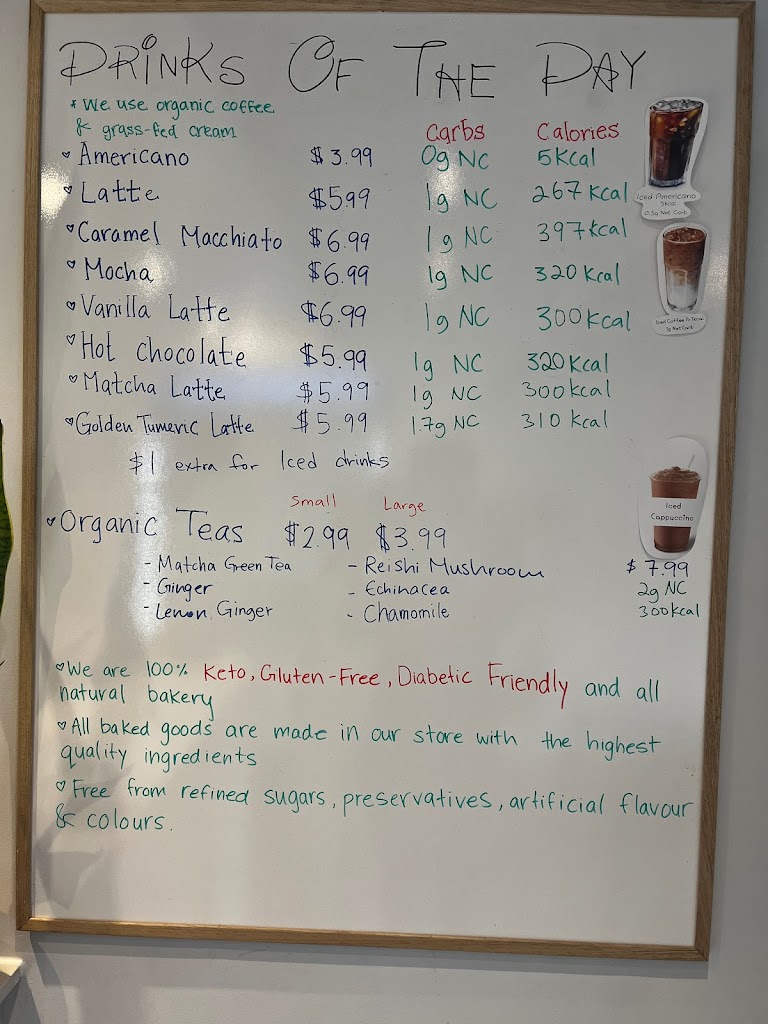 DRINKS OF THE DAY
* We use organic coffee
& grass-fed cream
Carbs Calories
♡ Americano $3.99 0g NC 5Kcal
♡ Latte $5.99 1g NC 267 Kcal
♡ Caramel Macchiato $6.99 1g NC 397 Kcal
♡ Mocha $6.99 1g NC 320 Kcal
♡ Vanilla Latte $6.99 1g NC 300 Kcal
♡ Hot chocolate $5.99 1g NC 320 Kcal
♡ Matcha Latte $5.99 1g NC 300 Kcal
♡ Golden Tumeric Latte $5.99 1.7g NC 310 Kcal
$1 extra for Iced drinks
Iced Americano
5kcal
0.5g Net Carb
1g Net Carb
Small Large
♡ Organic Teas $2.99 $3.99
- Matcha Green Tea - Reishi Mushroom
- Ginger - Echinacea
- Lemon Ginger - Chamomile
Iced
Cappuccino
$7.99
2g NC
300 Kcal
♡ We are 100% Keto, Gluten-Free, Diabetic Friendly and all
natural bakery
♡ All baked goods are made in our store with the highest
quality ingredients
♡ Free from refined sugars, preservatives, artificial flavour
& colours.